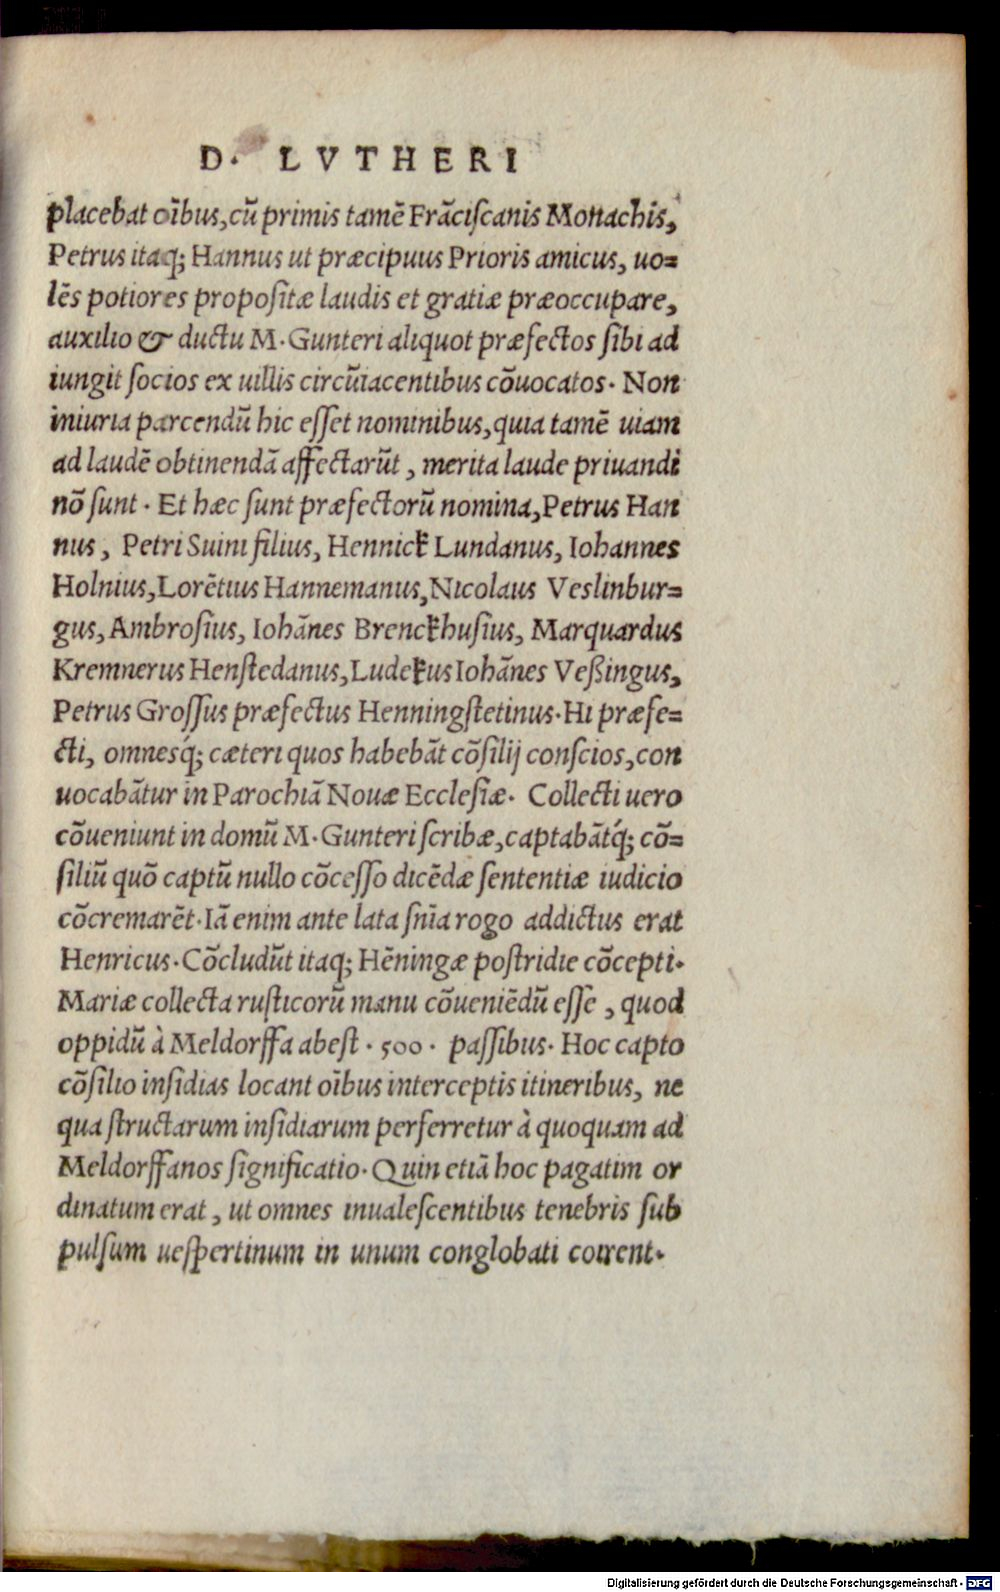 D. LVTHERI
placebat oĩbus, cũ primis tamẽ Frãciſcanis Monachis,
Petrus itaq; Hannus ut præcipuus Prioris amicus, uo=
lẽs potiores propoſitæ laudis et gratiæ præoccupare,
auxilio & ductu M. Gunteri aliquot præfectos ſibi ad
iungit ſocios ex uillis circũiacentibus cõuocatos. Non
iniuria parcendũ hic eſſet nominibus, quia tamẽ uiam
ad laudẽ obtinendã affectarũt, merita laude priuandi
nõ ſunt. Et hæc ſunt præfectorũ nomina, Petrus Han
nus, Petri Suini filius, Hennick Lundanus, Iohannes
Holnius, Lorẽtius Hannemanus, Nicolaus Veslinbur=
gus, Ambroſius, Iohãnes Brenckhuſius, Marquardus
Kremnerus Henſtedanus, Ludekus Iohãnes Veßingus,
Petrus Groſſus præfectus Henningſtetinus. Hi præfe=
cti, omnesq́; cæteri quos habebãt cõſilij conſcios, con
uocabãtur in Parochiã Nouæ Eccleſiæ. Collecti uero
cõueniunt in domũ M. Gunteri ſcribæ, captabãtq́; cõ=
ſiliũ quõ captũ nullo cõceſſo dicẽdæ ſententiæ iudicio
cõcremarẽt. Iã enim ante lata ſñia rogo addictus erat
Henricus. Cõcludũt itaq; Hẽningæ poſtridie cõcepti.
Mariæ collecta ruſticorũ manu cõueniẽdũ eſſe, quod
oppidũ à Meldorffa abeſt. 500. paſſibus. Hoc capto
cõſilio inſidias locant oĩbus interceptis itineribus, ne
qua ſtructarum inſidiarum perferretur à quoquam ad
Meldorffanos ſignificatio. Quin etiã hoc pagatim or
dinatum erat, ut omnes inualeſcentibus tenebris ſub
pulſum ueſpertinum in unum conglobati coirent.
Digitalisierung gefördert durch die Deutsche Forschungsgemeinschaft - DFG